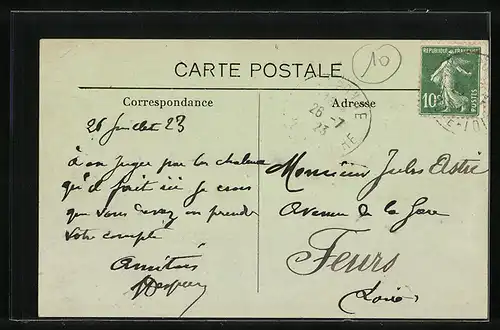 10
CARTE POSTALE
REPUBLIQUE FRANCAISE
10c
POSTES
Correspondance
Adresse
26 -7
23
26 Juillet 23
à en juger par les chaleurs
qu'il fait ici je crois
que vous devez en prendre
votre compte
Amitiés
Monsieur Jules Astic
Avenue de la Gare
Feurs
Loire